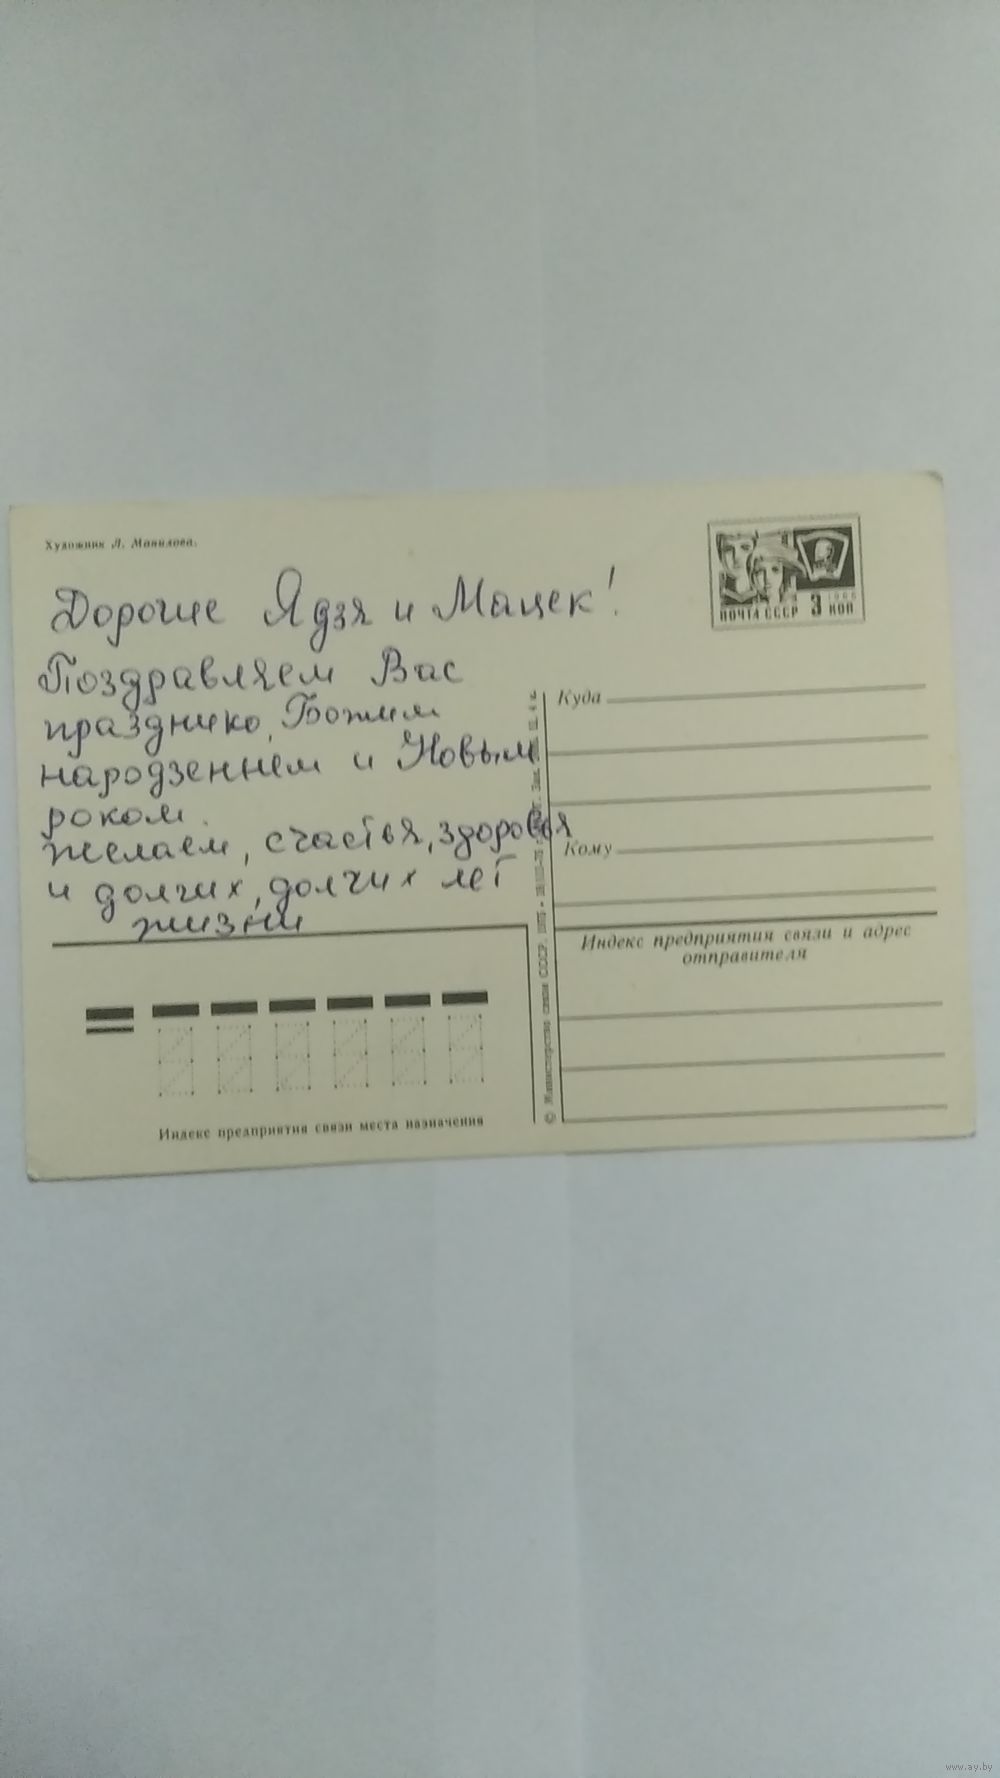 Художник Л. Манилова.
Дорогие Ядзя и Мацек!
Поздравляем Вас
праздники, Божим
народзеннем и Новым
роком.
желаем, счастья, здоровья
и долгих, долгих лет
жизни
ПОЧТА СССР 3 КОП
1966
Куда
Кому
Индекс предприятия связи и адрес
отправителя
Индекс предприятия связи места назначения
© Министерство связи СССР. 1975
www.ay.by